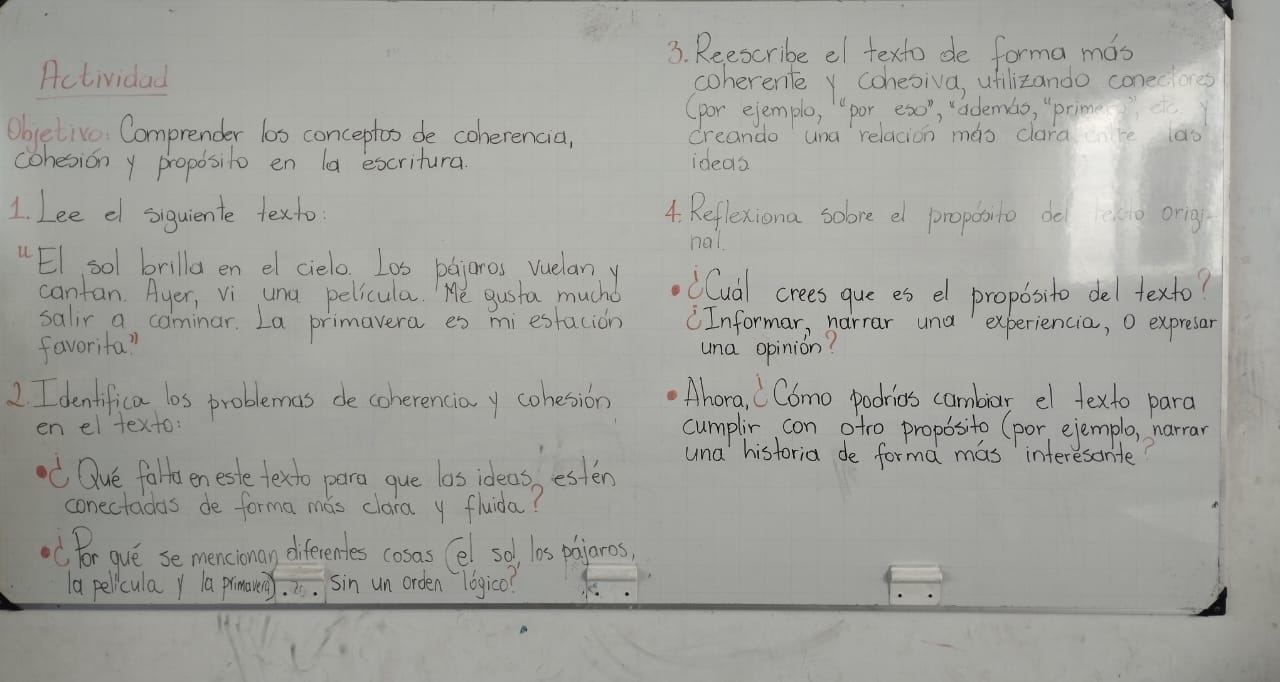 Actividad
Objetivo: Comprender los conceptos de coherencia,
cohesión y propósito en la escritura.
1. Lee el siguiente texto:
"El sol brilla en el cielo. Los pájaros vuelan y
cantan. Ayer, vi una película. Me gusta mucho
salir a caminar. La primavera es mi estación
favorita."
2. Identifica los problemas de coherencia y cohesión
en el texto:
• ¿Qué falta en este texto para que las ideas estén
conectadas de forma más clara y fluida?
• ¿Por qué se mencionan diferentes cosas (el sol, los pájaros,
la película y la primavera) sin un orden lógico?
3. Reescribe el texto de forma más
coherente y cohesiva, utilizando conectores
(por ejemplo, "por eso", "además, "primero", etc. y
creando una relación más clara entre las
ideas
4. Reflexiona sobre el propósito del texto origi-
nal.
• ¿Cuál crees que es el propósito del texto?
¿Informar, narrar una experiencia, o expresar
una opinión?
• Ahora, ¿Cómo podrías cambiar el texto para
cumplir con otro propósito (por ejemplo, narrar
una historia de forma más interesante?